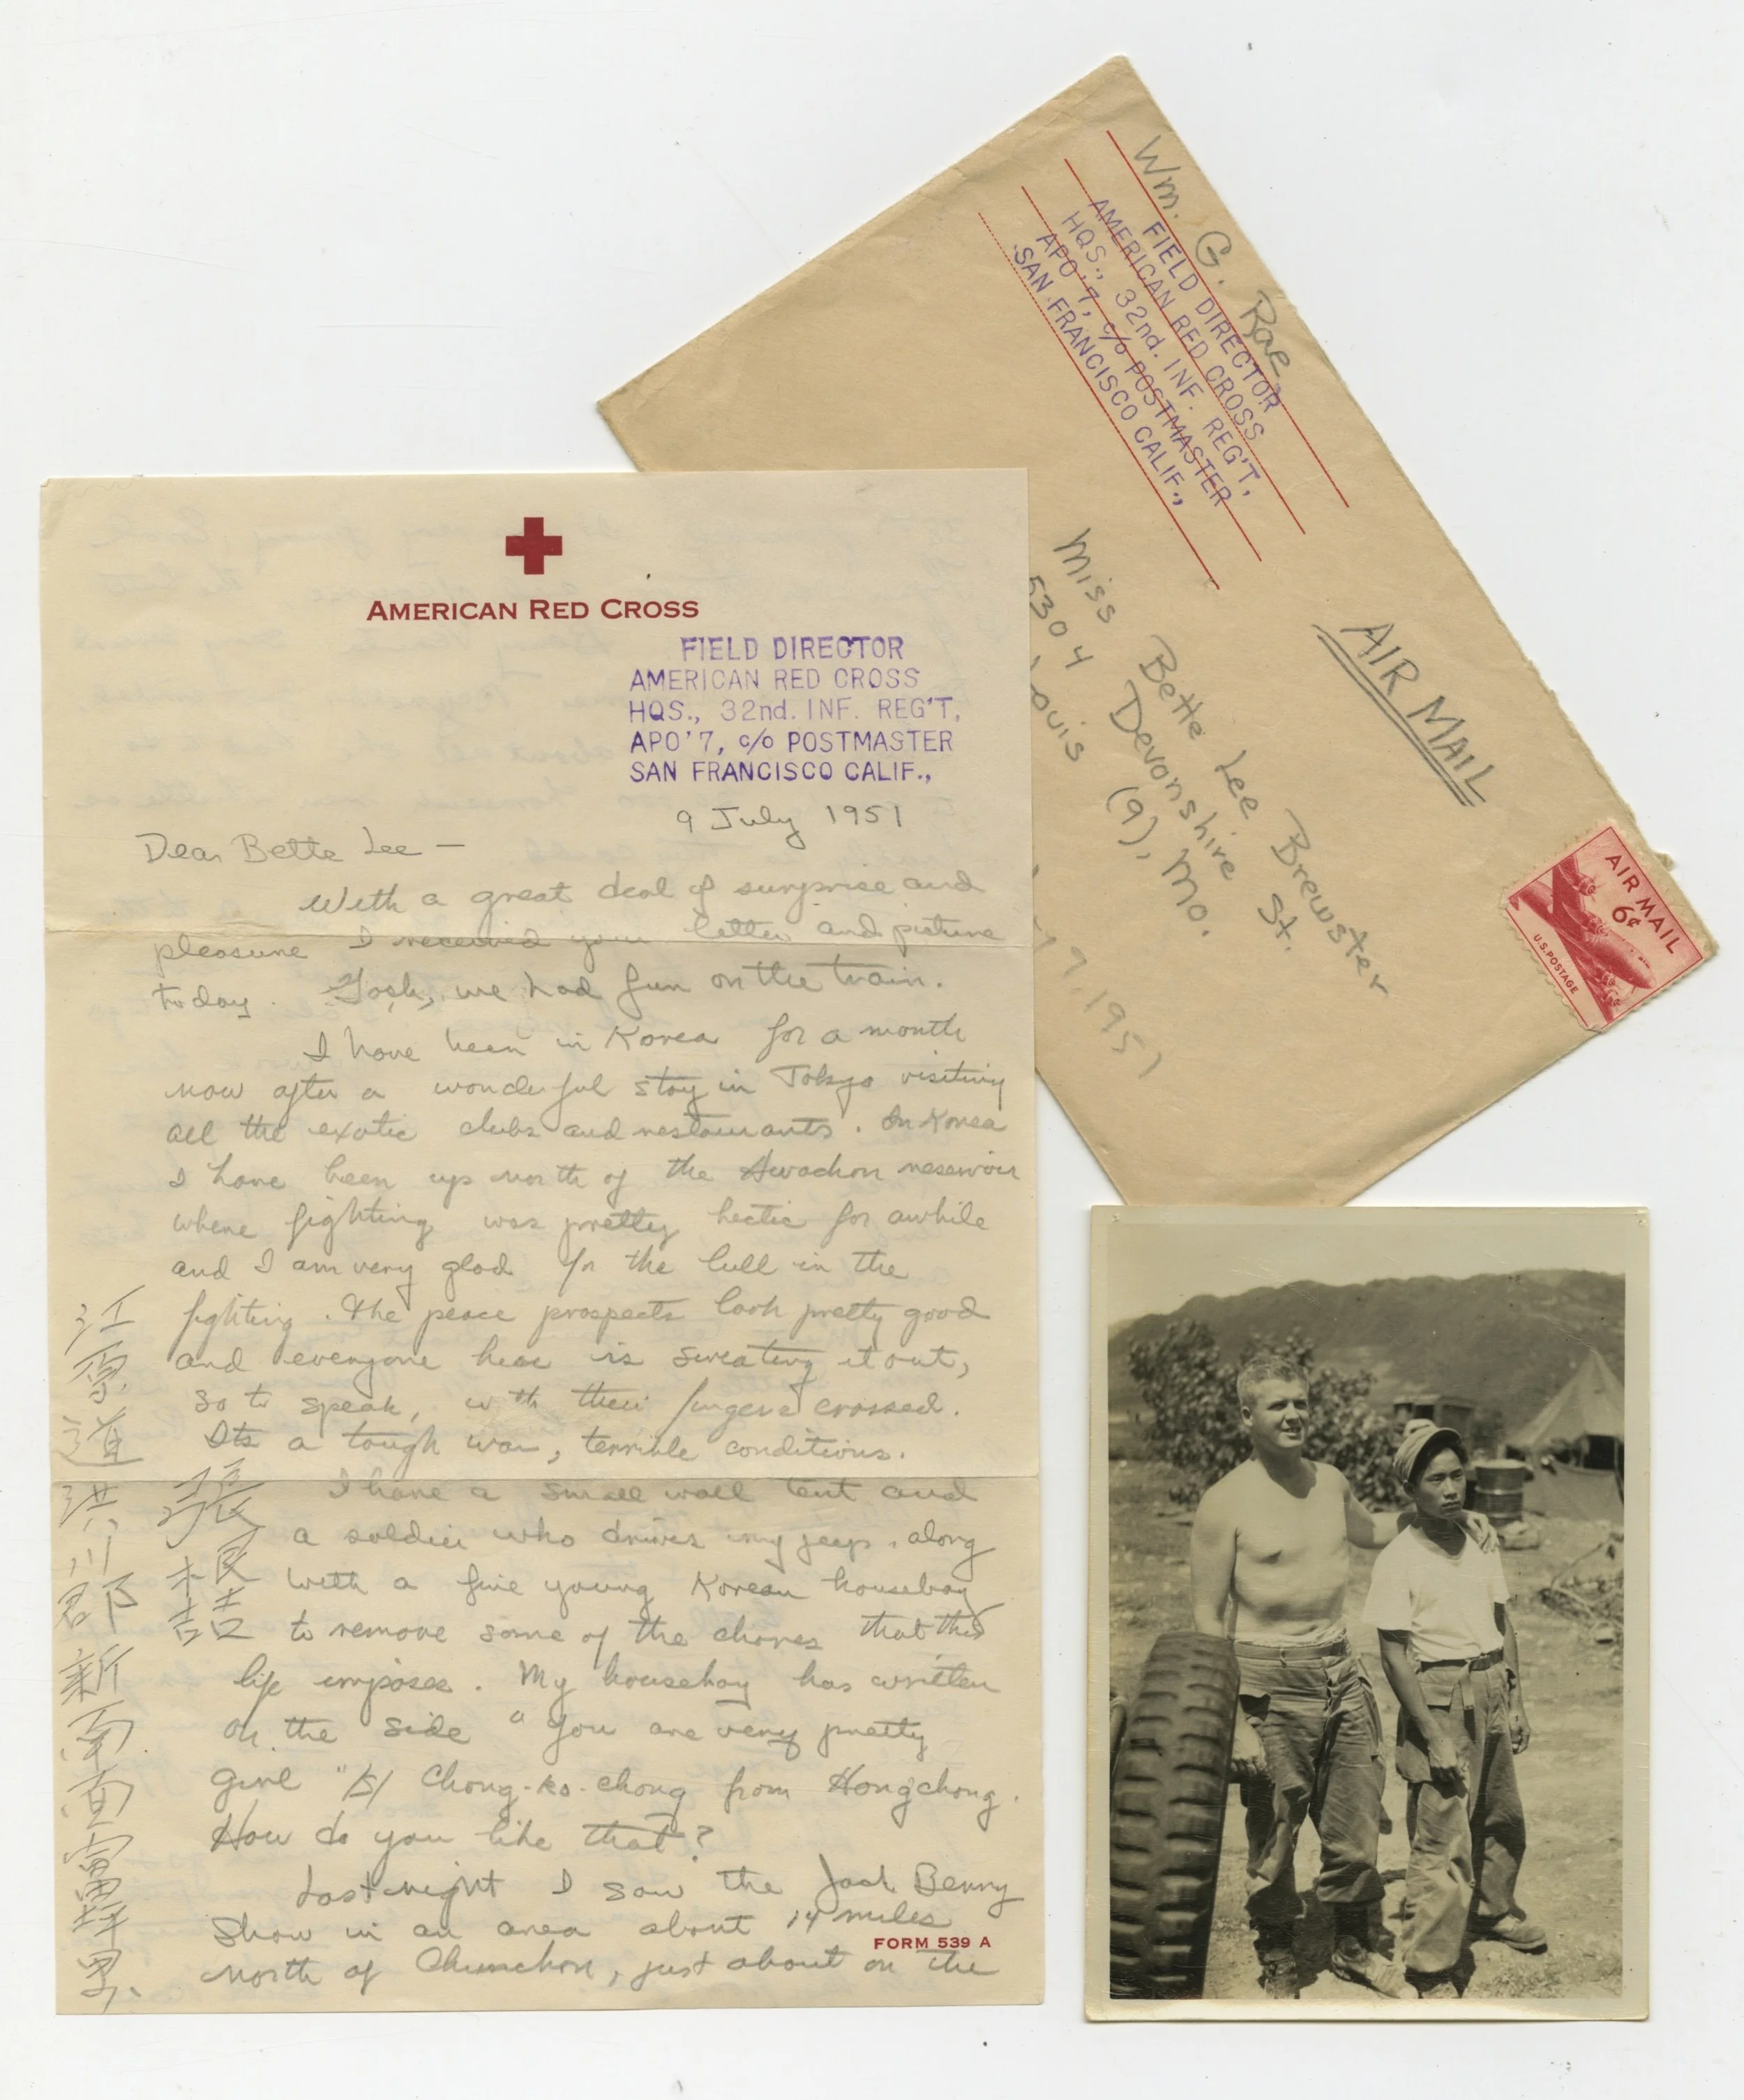 Wm. G. Rae
FIELD DIRECTOR
AMERICAN RED CROSS
HQS., 32nd. INF. REG'T,
APO'7, c/o POSTMASTER
SAN FRANCISCO CALIF.,
AIR MAIL
Miss Bette Lee Brewster
5304 Devonshire St.
Louis (9), Mo.
1951
AIR MAIL
6¢
U.S. POSTAGE
AMERICAN RED CROSS
FIELD DIRECTOR
AMERICAN RED CROSS
HQS., 32nd. INF. REG'T,
APO'7, c/o POSTMASTER
SAN FRANCISCO CALIF.,
9 July 1951
Dear Bette Lee —
With a great deal of surprise and
pleasure I received your letter and picture
today. Gosh, we had fun on the train.
I have been in Korea for a month
now after a wonderful stay in Tokyo visiting
all the exotic clubs and restaurants. In Korea
I have been up north of the Hwachon reservoir
where fighting was pretty hectic for awhile
and I am very glad for the lull in the
fighting. The peace prospects look pretty good
and everyone here is sweating it out,
so to speak, with their fingers crossed.
Its a tough war, terrible conditions.
I have a small wall tent and
a soldier who drives my jeep, along
with a fine young Korean houseboy
to remove some of the chores that this
life imposes. My houseboy has written
on the side "You are very pretty
girl" /s/ Chong-ko-chong from Hongchong.
How do you like that?
Last night I saw the Jack Benny
Show in an area about 14 miles
north of Chunchon, just about on the
FORM 539 A
江原道洪川郡新南面富坪里
張根喆